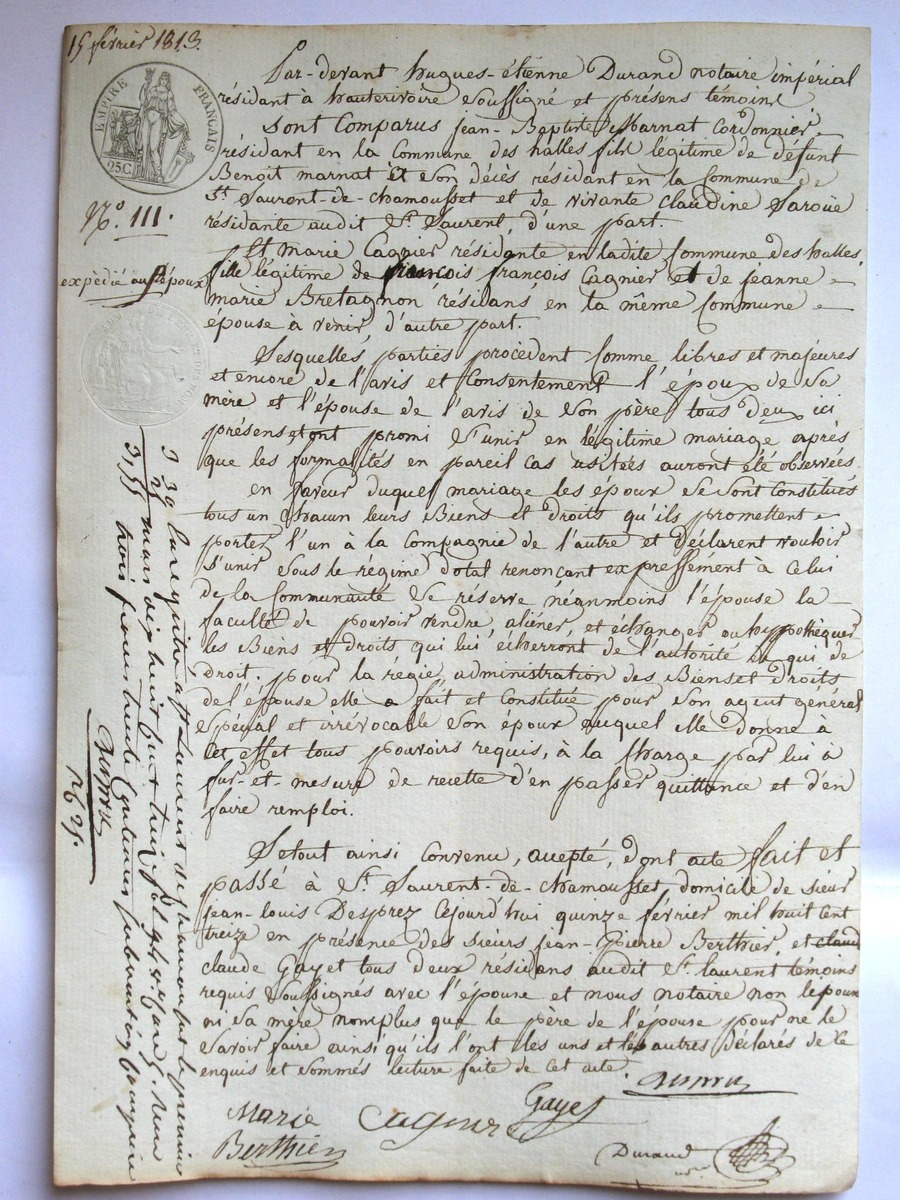 15 février 1813.
EMPIRE FRANÇAIS
25C
N° 111.
expédié aux époux
Par-devant hugues-étienne Durand notaire impérial
résidant à hauterivoire soussigné et présens témoins
sont Comparus jean-Baptiste Marnat Cordonnier
résidant en la Commune des halles fils légitime de défunt
Benoit marnat à son décès résidant en la Commune de
St Laurent-de-chamousset et de vivante claudine Laroüe
résidante audit St Laurent, d'une part.
Et Marie Cagnier résidante en ladite Commune des halles
fille légitime de françois françois Cagnier et de jeanne
marie Bretagnon résidans en la même Commune
épouse à venir, d'autre part.
Lesquelles parties procèdent Comme libres et majeures
et encore de l'avis et Consentement l'époux de sa
mère et l'épouse de l'avis de son père tous deux ici
présens et ont promi s'unir en légitime mariage après
que les formalités en pareil cas usitées auront été observées.
en faveur duquel mariage les époux se sont Constitués
tous un chacun leurs Biens et Droits qu'ils promettent
porter l'un à la Compagnie de l'autre et déclarent vouloir
s'unir sous le régime dotal renonçant expressement à Celui
de la Communauté se réserve néanmoins l'épouse la
faculté de pouvoir vendre, aliéner, et échanger ou hypothéquer
les Biens et droits qui lui écherront de l'autorité de qui de
droit. pour la régie, administration des Biens et Droits
de l'épouse elle a fait et Constitué pour son agent général
spécial et irrévocable son époux auquel elle donne à
cet effet tous pouvoirs requis, à la Charge par lui à
fur-et-mesure de recette d'en passer quittance et d'en
faire remploi.
Le tout ainsi Convenu, accepté, dont acte fait et
passé à St Laurent-de-chamousset, domicile de sieur
jean-louis Desprez Cejourd'hui quinze février mil huit Cent
treize en présence des sieurs jean-Pierre Berthier, et claud
claude Gayet tous deux résidans audit St laurent témoins
requis soussignés avec l'épouse et nous notaire non l'époux
ni sa mère nomplus que le père de l'épouse pour ne le
savoir faire ainsi qu'ils l'ont les uns et les autres déclarés de ce
enquis et sommés lecture faite de cet acte.
Marie Cagnier
Gayet
Berthier
Durand
3 30
25
3,55
Enregistré à St Laurent de chamousset le premier
mars dix huit cent treize
trois francs trente Centimes subvention comprise